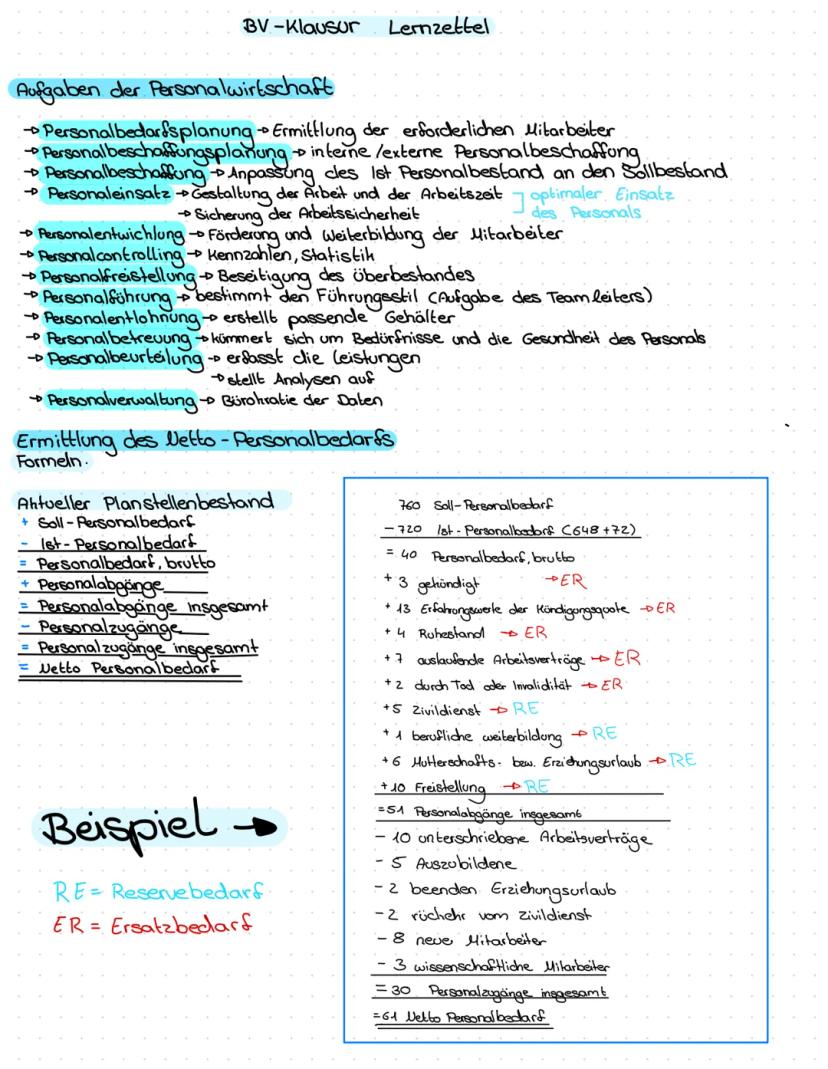 BV-Klausur Lernzettel
Aufgaben der Personalwirtschaft
→ Personalbedarfsplanung → Ermittlung der erforderlichen Mitarbeiter
→ Personalbeschaffungsplanung → interne/externe Personalbeschaffung
→ Personalbeschaffung → Anpassung des Ist Personalbestand an den Sollbestand
→ Personaleinsatz → Gestaltung der Arbeit und der Arbeitszeit ] optimaler Einsatz
→ Sicherung der Arbeitssicherheit ] des Personals
→ Personalentwicklung → Förderung und Weiterbildung der Mitarbeiter
→ Personalcontrolling → Kennzahlen, Statistik
→ Personalfreistellung → Beseitigung des überbestandes
→ Personalführung → bestimmt den Führungsstil (Aufgabe des Teamleiters)
→ Personalentlohnung → erstellt passende Gehälter
→ Personalbetreuung → kümmert sich um Bedürfnisse und die Gesundheit des Personals
→ Personalbeurteilung → erfasst die Leistungen
→ stellt Analysen auf
→ Personalverwaltung → Bürokratie der Daten
Ermittlung des Netto-Personalbedarfs
Formeln.
Aktueller Planstellenbestand
+ Soll-Personalbedarf
- Ist-Personalbedarf
= Personalbedarf, brutto
+ Personalabgänge
= Personalabgänge insgesamt
- Personalzugänge
= Personalzugänge insgesamt
= Netto Personalbedarf
Beispiel →
RE = Reservebedarf
ER = Ersatzbedarf
760 Soll-Personalbedarf
- 720 Ist-Personalbedarf (648+72)
= 40 Personalbedarf, brutto
+ 3 gekündigt → ER
+ 13 Erfahrungswerte der Kündigungsquote → ER
+ 4 Ruhestand → ER
+ 7 auslaufende Arbeitsverträge → ER
+ 2 durch Tod oder Invalidität → ER
+ 5 Zivildienst → RE
+ 1 berufliche weiterbildung → RE
+ 6 Mutterschafts- bzw. Erziehungsurlaub → RE
+ 10 Freistellung → RE
= 51 Personalabgänge insgesamt
- 10 unterschriebene Arbeitsverträge
- 5 Auszubildene
- 2 beenden Erziehungsurlaub
- 2 rückehr vom Zivildienst
- 8 neue Mitarbeiter
- 3 wissenschaftliche Mitarbeiter
= 30 Personalzugänge insgesamt
= 61 Netto Personalbedarf